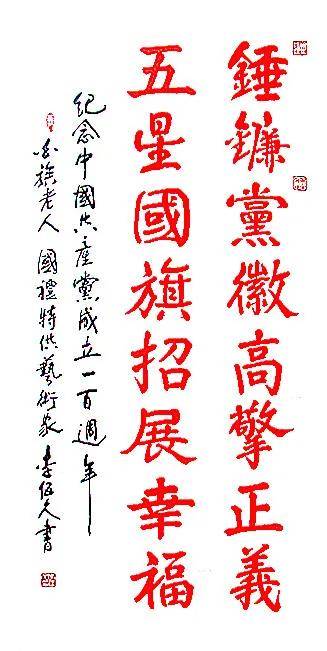 錘鐮黨徽高擎正義
五星國旗招展幸福
紀念中國共產黨成立一百週年
族老人 國禮特供藝術家 李書